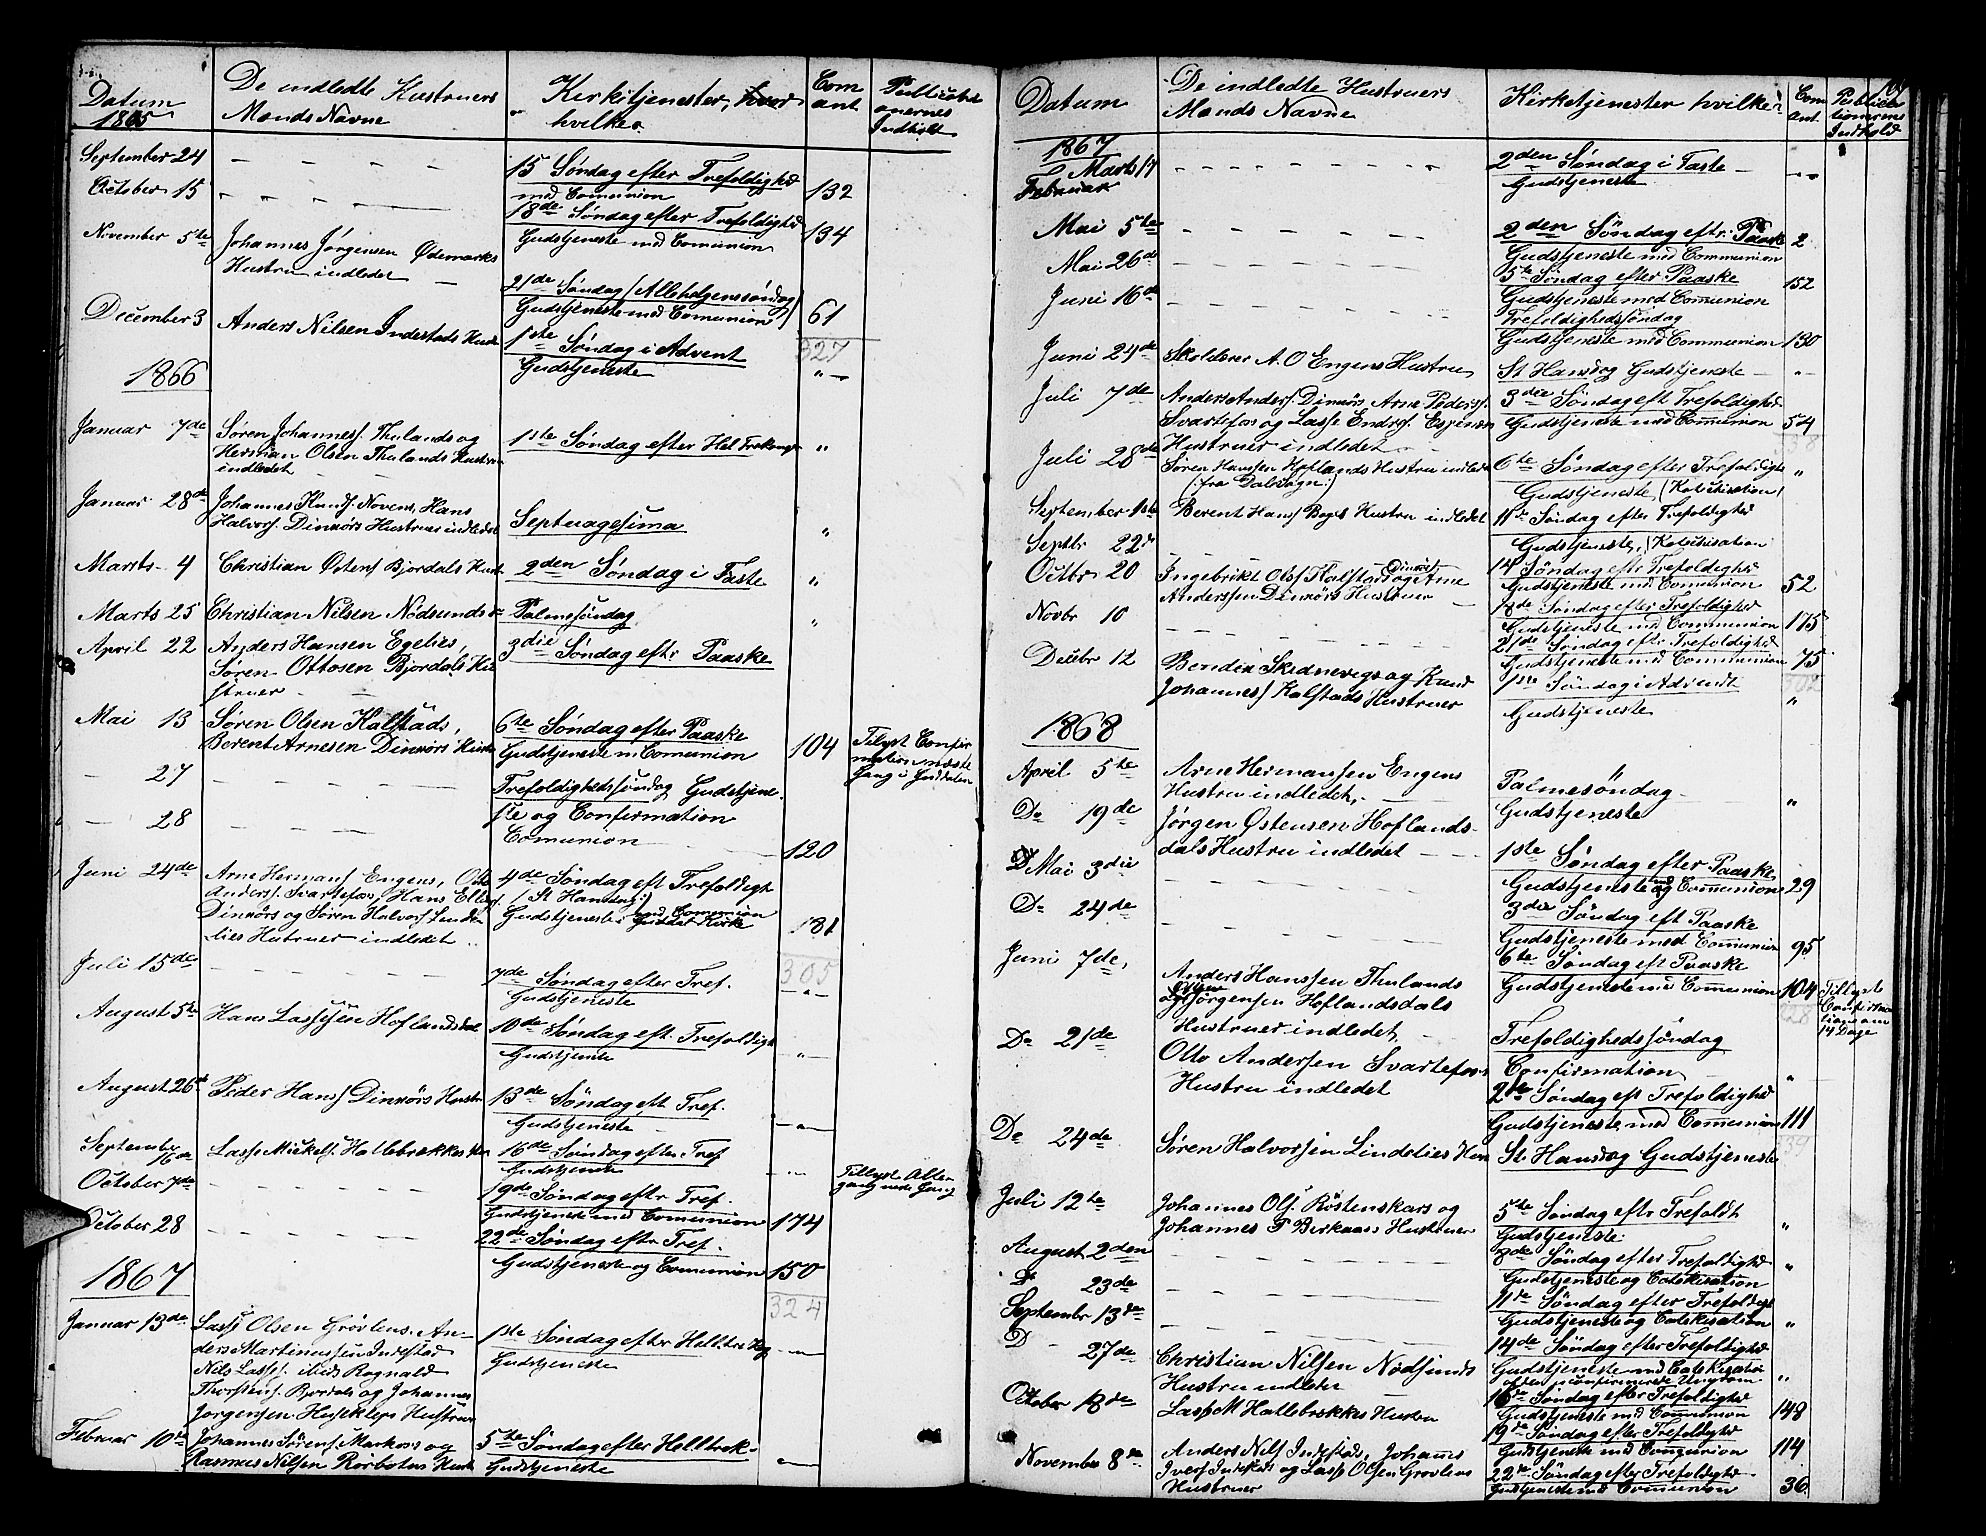 Datum
1865
De indledte Hustruers
Mænds Navne
Kirketjenester,
hvilke
Com
ant.
Indhold
September 24 — — — — 15 Søndag efter Trefoldighd
med Comunion 132
October 15 — — — — 18de Søndag efter Trefoldighd
Gudstjeneste med Comunion 134
November 5te Johannes Jørgensen Ødemarks
Hustru indledet —
21de Søndag (Allehelgenssøndag)
Gudstjeneste med Comunion 61
December 3 Anders Nilsen Indestads
1ste Søndag i Advent 327
Gudstjeneste " —
1866
Januar 7de Søren Johanness. Thulands og
Herman Olsen Thulands Hustruer
indledet
1ste Søndag efter "
Januar 28de Johannes Hans
Halvors. Dinnørs Hustruer indledet
Septuagesima "
Marts 4 Christian Bjordals
2den Søndag i Faste "
Marts 25 Christian Nilsen Nødsunds
Palmesøndag "
April 22 Anders Hansen Egelies,
Søren Ottosen Bjordals Hu-
struer
3die Søndag eftr Paaske
Mai 13 Søren Olsen Kalstads,
Berent Arnesen Dinnørs
6te Søndag efter Paaske
Gudstjeneste m Comunion 104
Tilyst Confir
mation næste
Gang i Guddalen
— 27 Trefoldighedssøndag Gudstjene-
ste og Confirmation
— 28 — — — Comunion 120
Juni 24de Arne Hermans Engens,
Anders. Svartefos,
Dinnørs og Søren Halvors Linde-
lies Hustruer indledet
4de Søndag eft Trefoldigh
(St Hansdag)
Gudstjeneste med Comunion 181
305
Juli 15de — — — — 7de Søndag efter Tref.
Gudstjeneste — " —
August 5te Hans Lassesen Hoflandsdal
10de Søndag eft. Trefoldigh
Gudstjeneste "
August 26 Peder Hans Dinnørs Hustr
13de Søndag eft Tref.
Gudstjeneste — " —
September
16de Lasse Mickels. Hatlebrækkes
16de Søndag efter Tref
Gudstjeneste "
October 7de — — — — 19de Søndag eftr. Tref.
Gudstjeneste med Comunion 174
Tillyst Alter
gang næste Gang
October 28 — — — 22de Søndag eftr. Tref.
Gudstjeneste og Comunion 150
324
1867
Januar 13de Lass Olsen Grøvlens. An-
ders Martinussen Indestad
Nils Lass. Rognald
Thorstens. Bjordals og Johannes
Jørgensen Huseklep Hustruer
1ste Søndag efter
Gudstjeneste — " —
Februar 10de Johannes Sørens Markos og
Rasmus Nilsen
5te Søndag efter Helltrek-
Gudstjeneste — " —
Datum
De indledte Hustruers
Mænds Navne
Kirketjenester hvilke
Com
ant.
Publica
tionernes
Indhold
1867
Marts 17
Februar
— — — — 2den Søndag i Faste —
Gudstjeneste
Mai 5te — — — — 2den Søndag eftr. Paaske 2
Gudstjeneste med Communion
Mai 26de — — — — 5te Søndag efter Paaske 152
Gudstjeneste med Comunion
Juni 16de — — — — Trefoldighedssøndag
Gudstjeneste med Communion 130
Juni 24de Skolelærer A. O Engens Hustru
St Hansdag Gudstjeneste — "
Juli 7de Anders Anders. Dinnørs Arne Peders.
Svartefos og Lasse Endres. Espenæs
Hustruer indledet
3die Søndag eft Trefoldighd
Gudstjeneste med Communion 54
Juli 28de Søren Hanssen Hoflands Hustru indledet
(: fra Dalsøgn :)
6te Søndag efter Trefoldigh "
Gudstjeneste (Katechisation)
September 1ste Berent Hans Hustru indledet
11te Søndag efter Trefoldighd
Gudstjeneste, (Katechisation
Septbr 22de — — — 14 Søndag eftr Trefoldighd
Gudstjeneste med Communion 52
Octbr 20 Ingebrikt Ols Kalstad og Arne
Anderssen Dinnørs Hustruer
18de Søndag efter Trefoldighd
Gudstjeneste med Communion 175
Novbr 10 — — — — 21de Søndag eft. Trefoldighed
Gudstjeneste med Communion 75
Decbr 12 Bendix Skidnevigs og Knud
Johanness Kalstads Hustruer
1ste Søndag i Advendt 302
Gudstjeneste "
1868
April 5te Arne Hermanssen Engens
Hustru indledet,
Palmesøndag
Gudstjeneste "
Do 19de Jørgen Østensen Hoflands-
dals Hustru indledet
1ste Søndag efter Paaske
Gudstjeneste Communion 29
Mai 3die — — — — 3die Søndag eft Paaske
Gudstjeneste med Communion 95
Do 24de — — — — 6te Søndag eft Paaske
Gudstjeneste med Communion 104
Tillyst
Confirma
tion om
14 Dage
Juni 7de, Anders Hanssen Thulands
og Jørgensen Hoflandsdals
Hustruer indledet,
Trefoldighedssøndag
Confirmation "
Do 21de Otto Andersen Svartefoss
Hustru indledet
2den Søndag eft Trefoldighd
Gudstjeneste med Communion 111
Do 24de Søren Halvorsen Lindelies
St. Hansdag Gudstjeneste
Juli 12te Johannes Ols. Röstenskars og
Johannes P Birkaas Hustruer
5te Søndag eftr Trefoldt
Gudstjeneste. "
August 2den — — — 8de Søndag efter Trefoldighd
Gudstjeneste og Catekisation "
Do 23de — — — 11te Søndag efter Trefoldighd
Gudstjeneste og Catekisation "
Septembr 13de — — — 14de Søndag efter Trefoldighd
Gudstjeneste med Catekisation
af den confirmerede Ungdom "
D — 27de Christian Nilsen Nødsunds
Hustru indledet
16de Søndag efter Trefoldighd
Gudstjeneste med Communion 148
October 18de Lass M Hatlebrækkes Hustru
19de Søndag efter Trefoldighd
Gudstjeneste med Communion 114
November 8de Anders Nils Indestads, Johannes
Ivers og Lass Olsen Grovlens
Hustruer
22de Søndag efter Trefoldighd
Gudstjeneste med Communion 36